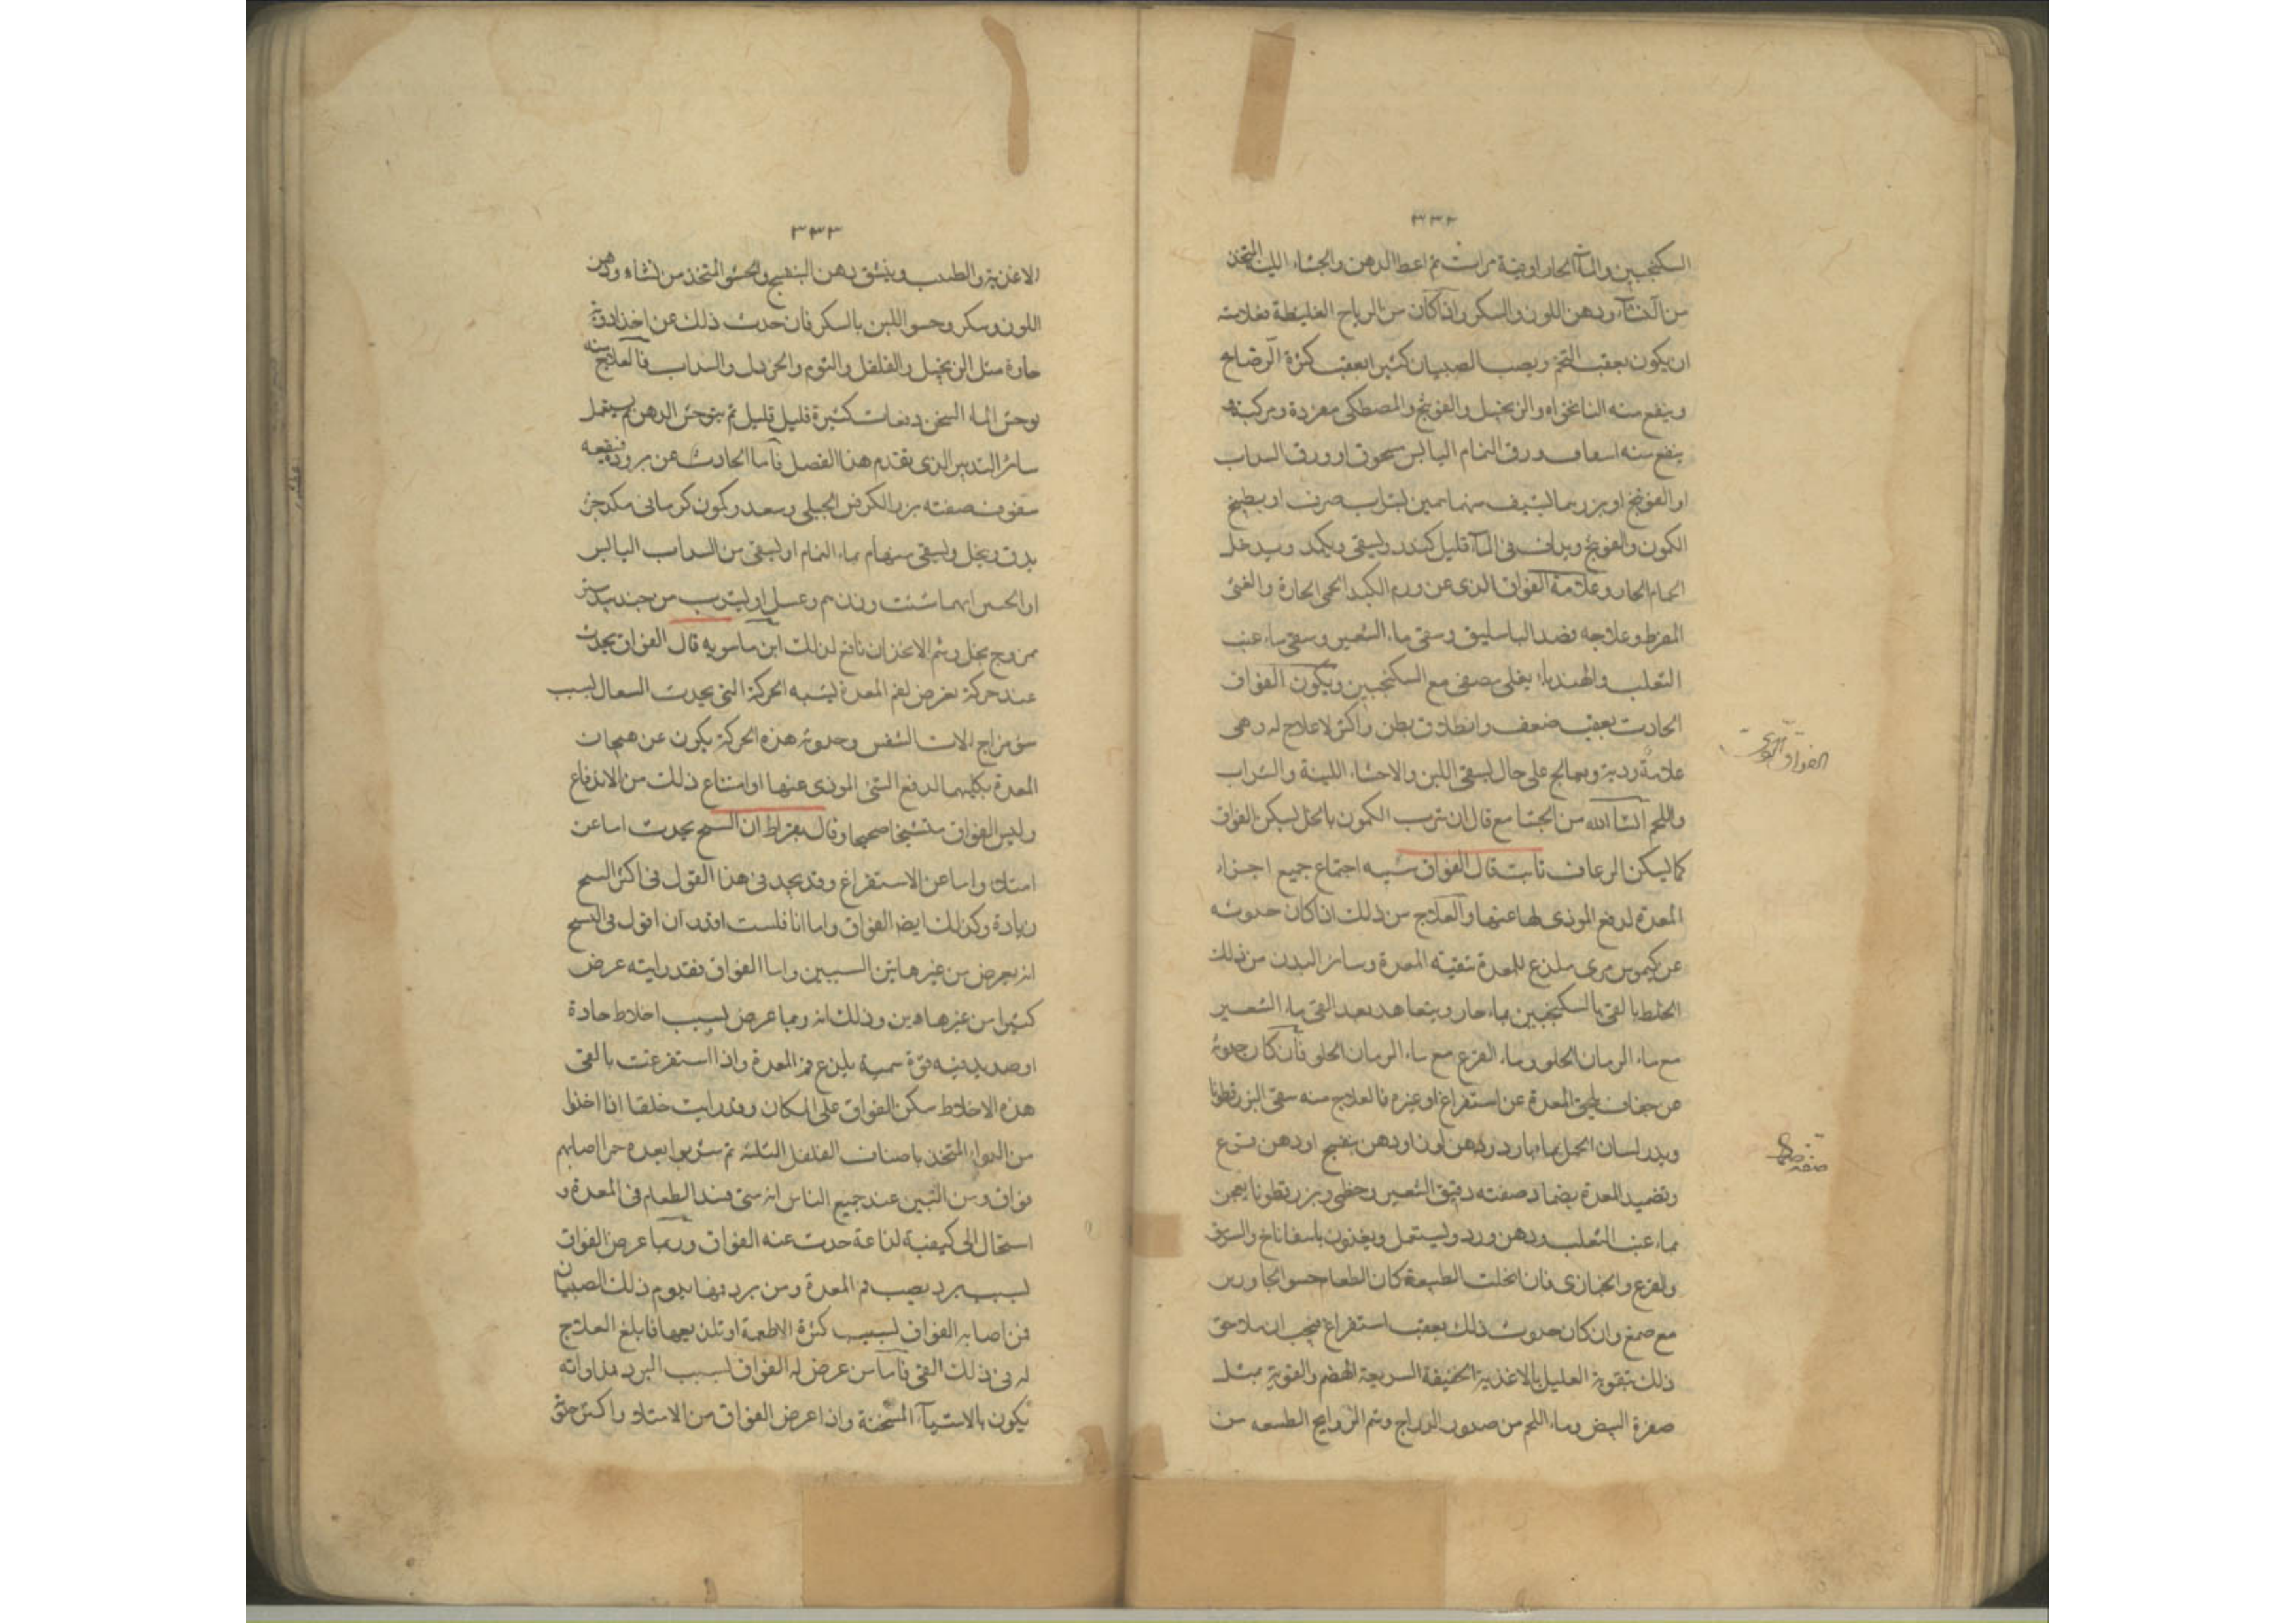 ٣٣٢
السكنجبين والمآ الحار اوقية مرات ثم اعط الدهن والحشاء اللين المتخذ
من النشآء ودهن اللوز والسكر واذا كان من الرياح الغليظة فعلامته
ان يكون بعقب التخم ويصيب الصبيان كثيرا بعقب كثرة الرضاع
وينفع منه النانخواه والزنجبيل والفوتنج والمصطكى مفردة ومركبة و
ينفع منه اسعاف ورق النمام اليابس مسحوق او ورق السداب
او الفوتنج او بزر بما ايسف منها بشراب صرف او بطبخ
الكمون والفوتنج ويداف فى المآء قليل كندر ويسقى ويكمد ويدخل
الحمام الحار وعلامة الفواق الذى عن ورم الكبد الحمى الحارة والقئ
المفرط وعلاجه فصد الباسليق وسقى ماء الشعير وسقى ماء عنب
الثعلب والهندباء يغلى مصفى مع السكنجبين ويكون الفواق
الحادث بعقب ضعف وانطلاق بطن واكثر لا علاج له وهى
علامة ردية ويعالج على حال بسقى اللبن والاحشاء اللينة والشراب
واللحم انشآ الله من الجشا مع قال ان شرب الكمون بالخل يسكن الفواق
كما يسكن الرعاف ثابت قال الفواق شبيه اجتماع جميع اجزاء
المعدة لدفع الموذى لها عنها والعلاج من ذلك ان كان حدوثه
عن كيموس مرى ملذع للمعدة تنقية المعدة وسائر البدن من ذلك
الخلط بالقى بالسكنجبين بماء حار ويتعاهد بعد القى ماء الشعير
مع ماء الرمان الحلو وماء القرع مع ماء الرمان الحلو فان كان حدوثه
عن جفاف لحق المعدة عن استفراغ او غيره فالعلاج منه سقى البزرقطونا
وبزر لسان الحمل بماء بارد ودهن لوز او دهن بنفسج او دهن قرع
وتضميد المعدة بضماد صفته دقيق الشعير وخطمى وبزرقطونا يعجن
بماء عنب الثعلب ودهن ورد ويستعمل ويغذون باسفاناخ والسرمق
والقرع والخبازى فان انحلت الطبيعة كان الطعام حسو الجاورس
مع صمغ وان كان حدوث ذلك بعقب استفراغ فيجب ان يلاحق
ذلك بتقوية العليل بالاغذية الخفيفة السريعة الهضم والقوية بمثل
صفرة البيض وماء اللحم من صدور الدراج وشم الروايح الطيبه من
صفة ضماد
٣٣٣
الاغذية والطيب وينشق دهن البنفسج والحسو المتخذ من نشاه ودهن
اللوز وسكر وحسو اللبن بالسكر فان حدث ذلك عن اخذ ادوية
حادة مثل الزنجبيل والفلفل والثوم والخردل والسداب فالعلاج منه
توجر الماء السخن دفعات كثيرة قليل قليل ثم يتوجر الدهن ثم يستعمل
سائر التدبير الذى تقدم هذا الفصل فاما الحادث عن برودة فينفعه
سفوف صفته بزر الكرفس الجبلى وسعد وكمون كرمانى مكد جز
يدق وينخل ويسقى منها م بماء النمام او يسقى من السداب اليابس
او الحسن ايهما شئت وزن م وعسل او يشرب من جندبيدستر
ممزوج بخل وشم الانجدان نافع لذلك ابن ماسويه قال الفواق يحدث
عند حركة تعرض لفم المعدة ليشبه الحركة التى يحدث السعال لسبب
سؤ مزاج الات التنفس وحدوثه هذه الحركة يكون عن هيجان
المعدة بكليهما لدفع الشئ الموذى عنها او امتناع ذلك من الاندفاع
وليس الفواق متشنجا صحيحا وقال بقراط ان التشنج يحدث اما عن
امتلاء واما عن الاستفراغ وقد يجد فى هذا القول فى اكثر النسخ
زيادة وكذلك ايضا الفواق واما انا فلست اقدر ان اقول فى التشنج
انه يعرض من غير هاتين السببين واما الفواق فقد رايته عرض
كثيرا من غير هاذين وذلك انه ربما عرض لسبب اخلاط حادة
او صديدية فيه قوة سمية يلذع فم المعدة واذا استفرغت بالقى
هذه الاخلاط سكن الفواق على المكان وقد رايت خلقا اذا اخذوا
من الدواء المتخذ باصناف الفلفل الثلثة ثم شربوا بعده خمرا اصابهم
فواق ومن البين عند جميع الناس انه متى فسد الطعام فى المعدة و
استحال الى كيفية لذاعة حدث عنه الفواق وربما عرض الفواق
لسبب برد يصيب فم المعدة ومن برد فيها يدوم ذلك الصبيان
فمن اصابه الفواق لسبب كثرة الاطعمة او تلذيعها فابلغ العلاج
له فى ذلك القى فاما من عرض له الفواق لسبب البرد مداواته
يكون بالاشيآء المسخنة واذا عرض الفواق من الامتلاء واكثر